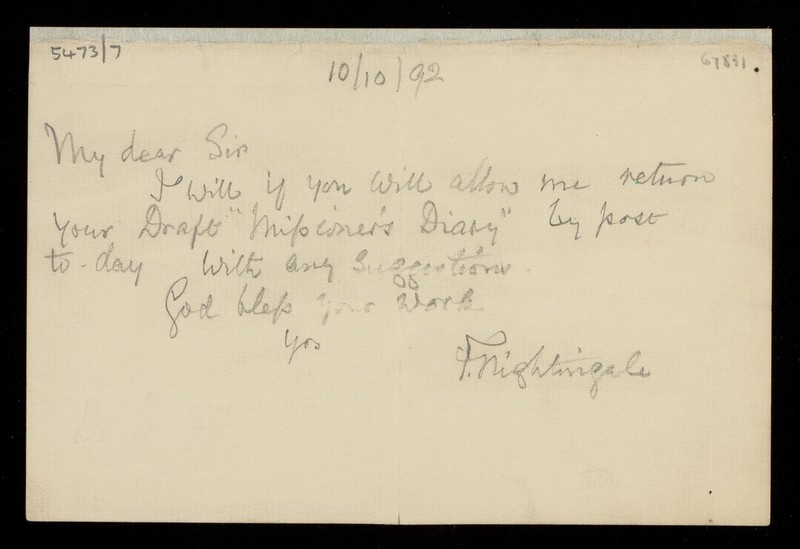 5473/7
67831.
10/10/92
My dear Sir
I will if you will allow me return
your Draft "Miſsioner's Diary" by post
to-day with any suggestions.
God bleſs your work
yrs
F. Nightingale